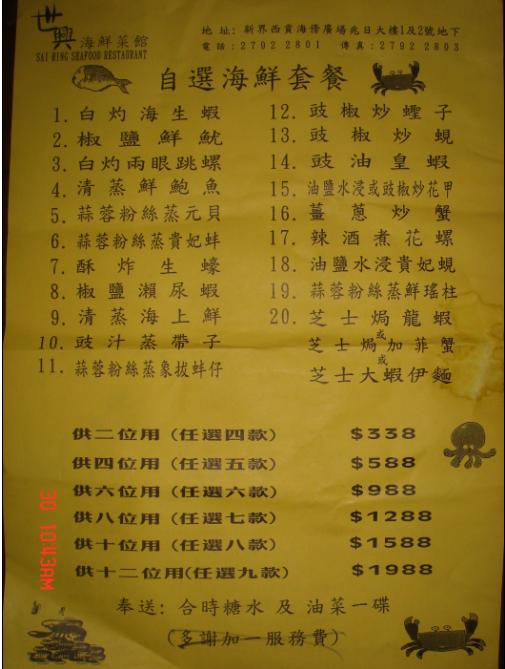 世興
海鮮菜館
SAI HING SEAFOOD RESTAURANT
地址: 新界西貢海傍廣場兆日大樓1及2號地下
電話: 2792 2801 傳真: 2792 2803
自選海鮮套餐
1. 白灼海生蝦
2. 椒鹽鮮魷
3. 白灼兩眼跳螺
4. 清蒸鮮鮑魚
5. 蒜蓉粉絲蒸元貝
6. 蒜蓉粉絲蒸貴妃蚌
7. 酥炸生蠔
8. 椒鹽瀨尿蝦
9. 清蒸海上鮮
10. 豉汁蒸帶子
11. 蒜蓉粉絲蒸象拔蚌仔
12. 豉椒炒蟶子
13. 豉椒炒蜆
14. 豉油皇蝦
15. 油鹽水浸或豉椒炒花甲
16. 薑蔥炒蟹
17. 辣酒煮花螺
18. 油鹽水浸貴妃蜆
19. 蒜蓉粉絲蒸鮮瑤柱
20. 芝士焗龍蝦
或
芝士焗加菲蟹
或
芝士大蝦伊麵
供二位用(任選四款) $338
供四位用(任選五款) $588
供六位用(任選六款) $988
供八位用(任選七款) $1288
供十位用(任選八款) $1588
供十二位用(任選九款) $1988
奉送: 合時糖水 及 油菜一碟
(多謝加一服務費)
30 10:43AM